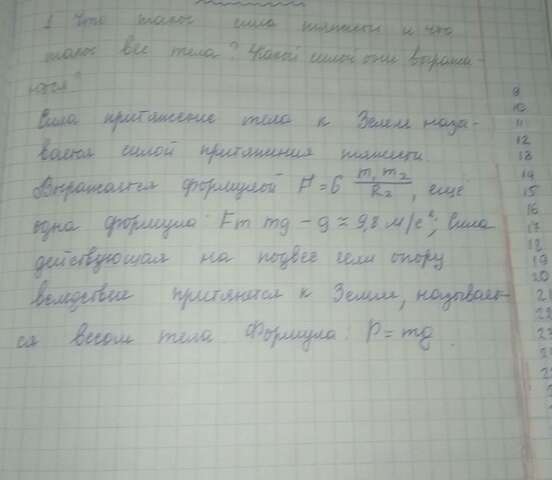 1 Что такое сила тяжести и что
такое вес тела? Какой силой они выража-
ются?
Сила притяжение тела к Земле назы-
вается силой притяжения тяжести.
Выражается формулой F=G m1 m2 / R2, ещё
одна формула: Fт mg - g ≈ 9,8 м/с²; Сила
действующая на подвес или опору
вследствие притянется к Земле, называет-
ся весом тела. Формула: P = mg
9
10
11
12
13
14
15
16
17
18
19
20
21
22
23